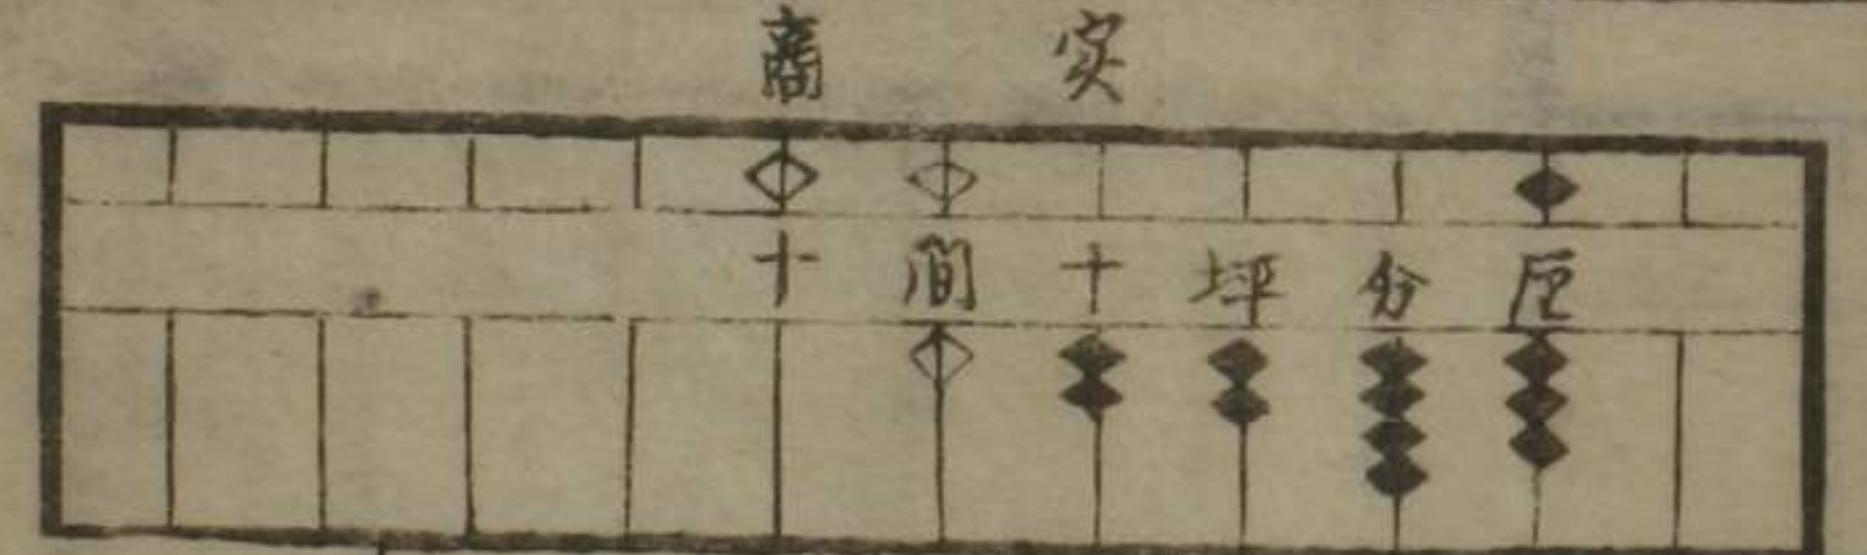 商 実
十 間 十 坪 分 厘